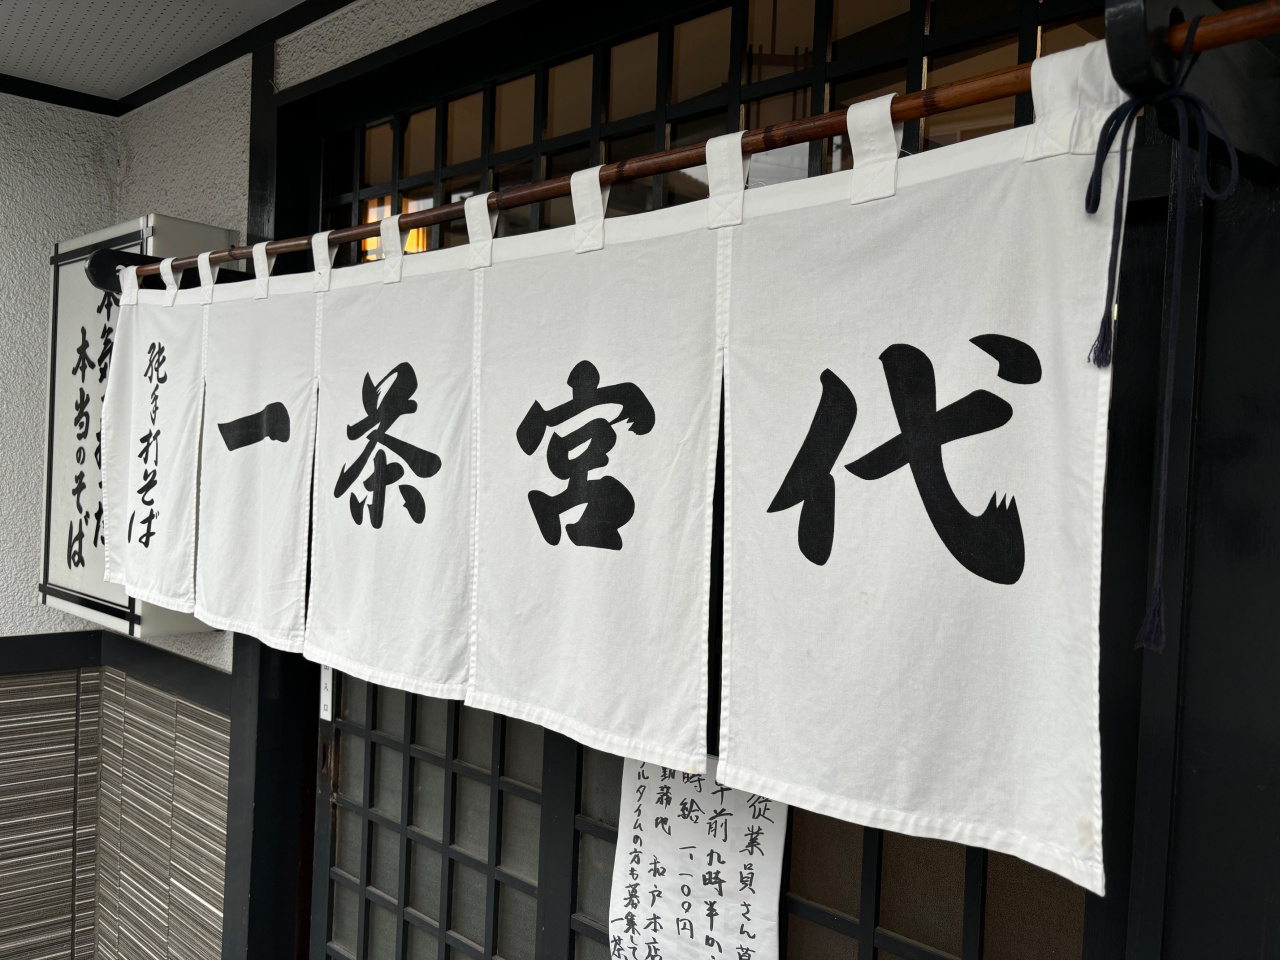 代宮茶一
純手打そば
本当のそば
入口
従業員さん募
午前九時半か
時給一、一〇〇円
勤務地 和戸本店
ルタイムの方も募集して
一茶